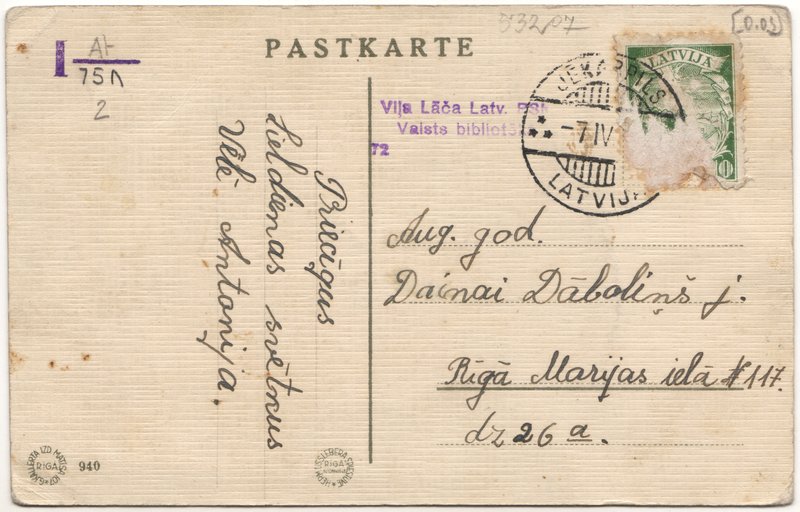 I A-
75л
2
PASTKARTE
[0.05]
Viļa Lāča Latv. PSR
Valsts bibliotē
72
JEKABPILS
-7 IV
LATVIJA
LATVIJA
10
Priecīgus
Lieldienas svētkus
Vēlē Antonija.
Aug. god.
Dainai Dāboliņš j.
Rīgā Marijas ielā № 117.
dz 26 a.
RĪGA
940
RĪGĀ